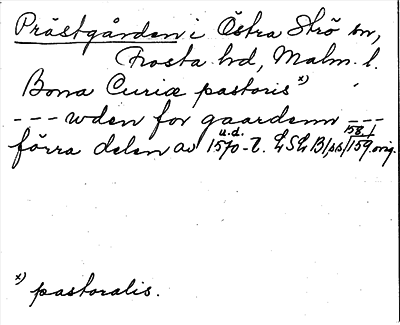 Prästgården i Östra Strö sn,
Frosta hd, Malm. l.
Bona Curiæ pastoris x)
--- wden for gaardenn ---
förra delen av 1570-t. u.d. LSL B/ss/159 orig.
158/
x) pastoralis.